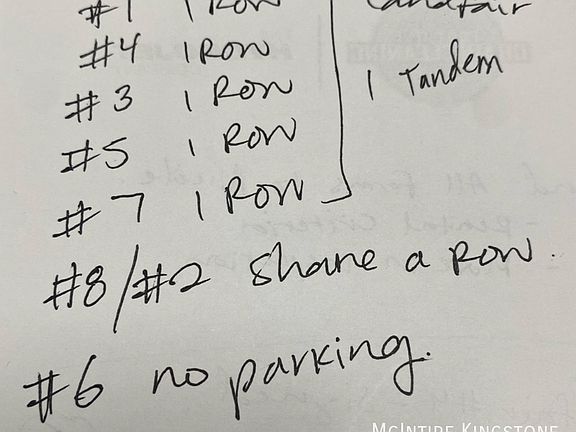 #1 1 Row Landfair
#4 1 Row
#3 1 Row 1 Tandem
#5 1 Row
#7 1 Row
#8/#2 share a row.
#6 no parking.
McIntire Kingstone